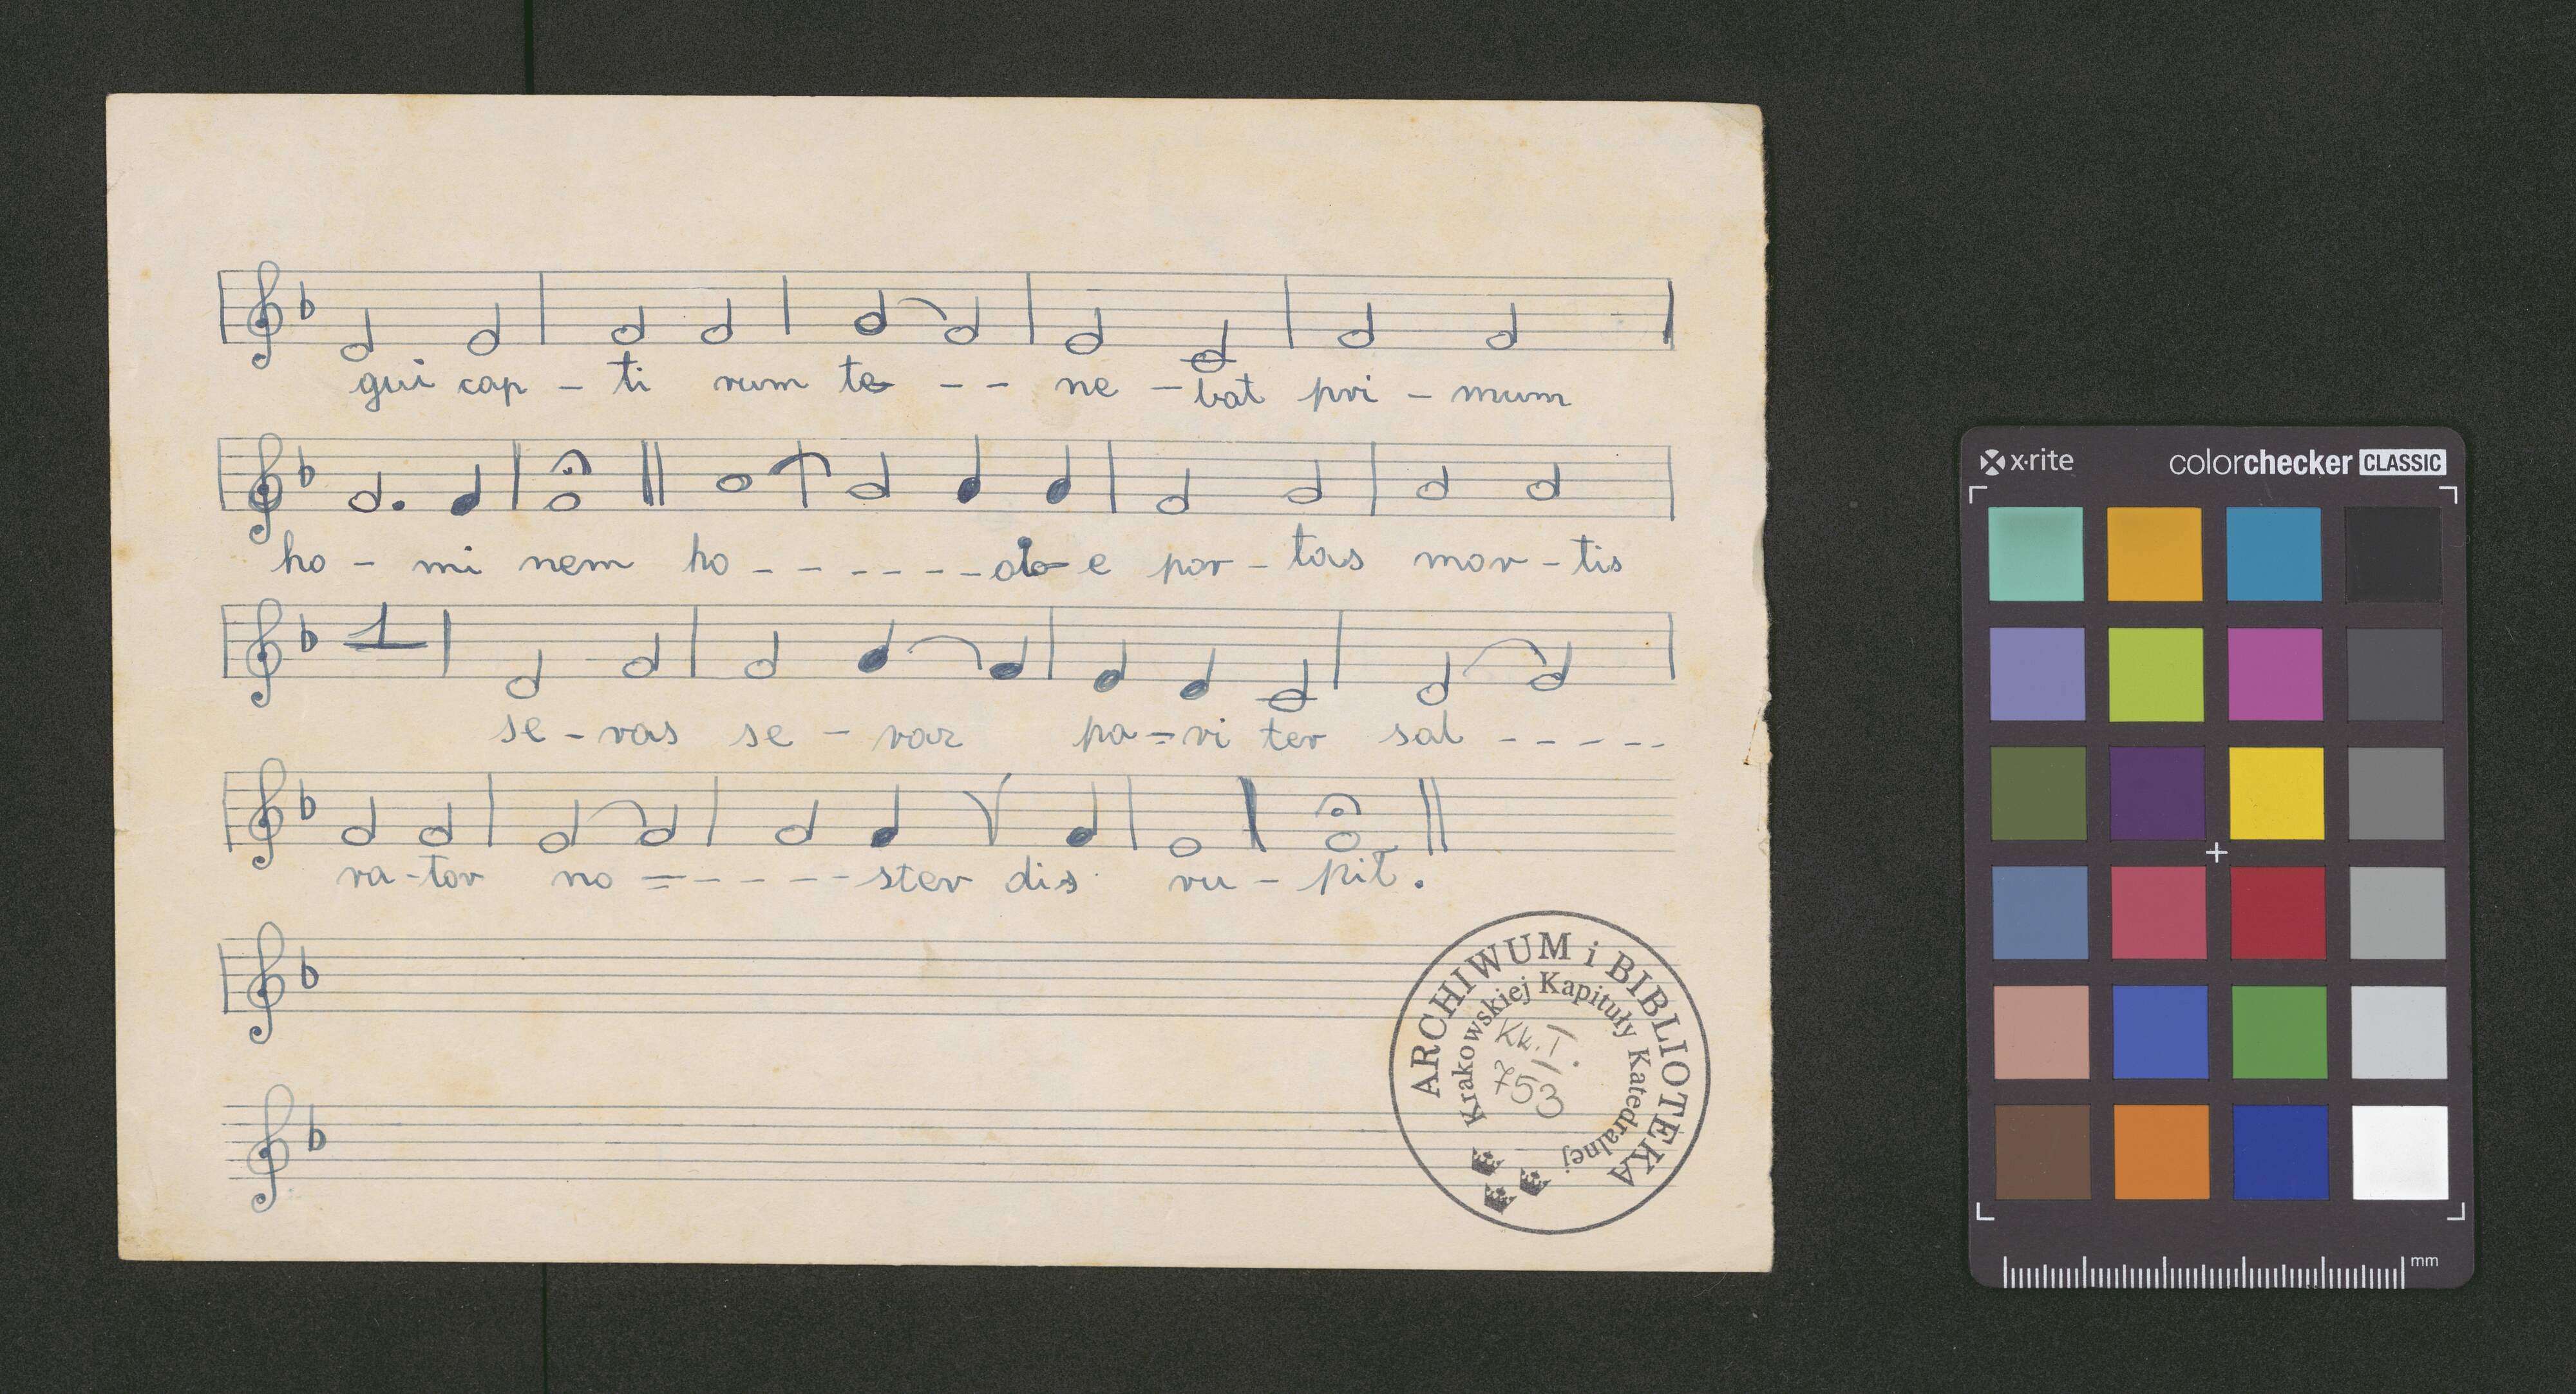 qui cap - ti vum te - - ne - bat pri - mum
ho - mi nem ho - - - - - - - di e por - tas mor - tis
1
se - ras se - rar pa = ri ter sal - - - - -
va - tor no = - - - - - ster dis ru - pit.
ARCHIWUM i BIBLIOTEKA
Krakowskiej Kapituły Katedralnej
Kk. I.
753
x·rite colorchecker CLASSIC
mm